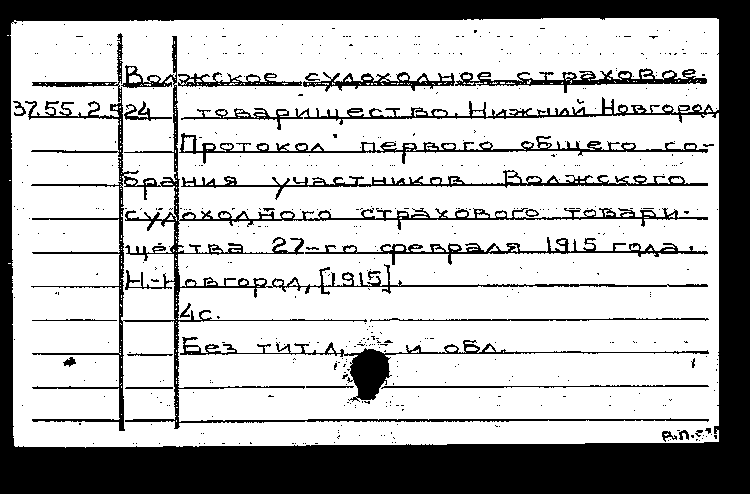 Волжское судоходное страховое.
37.55.2.524 товарищество. Нижний Новгород
Протокол первого общего со-
брания участников Волжского
судоходного страхового товари-
щества 27-го февраля 1915 года.
Н.-Новгород, [1915].
4с.
Без тит. л. и обл.